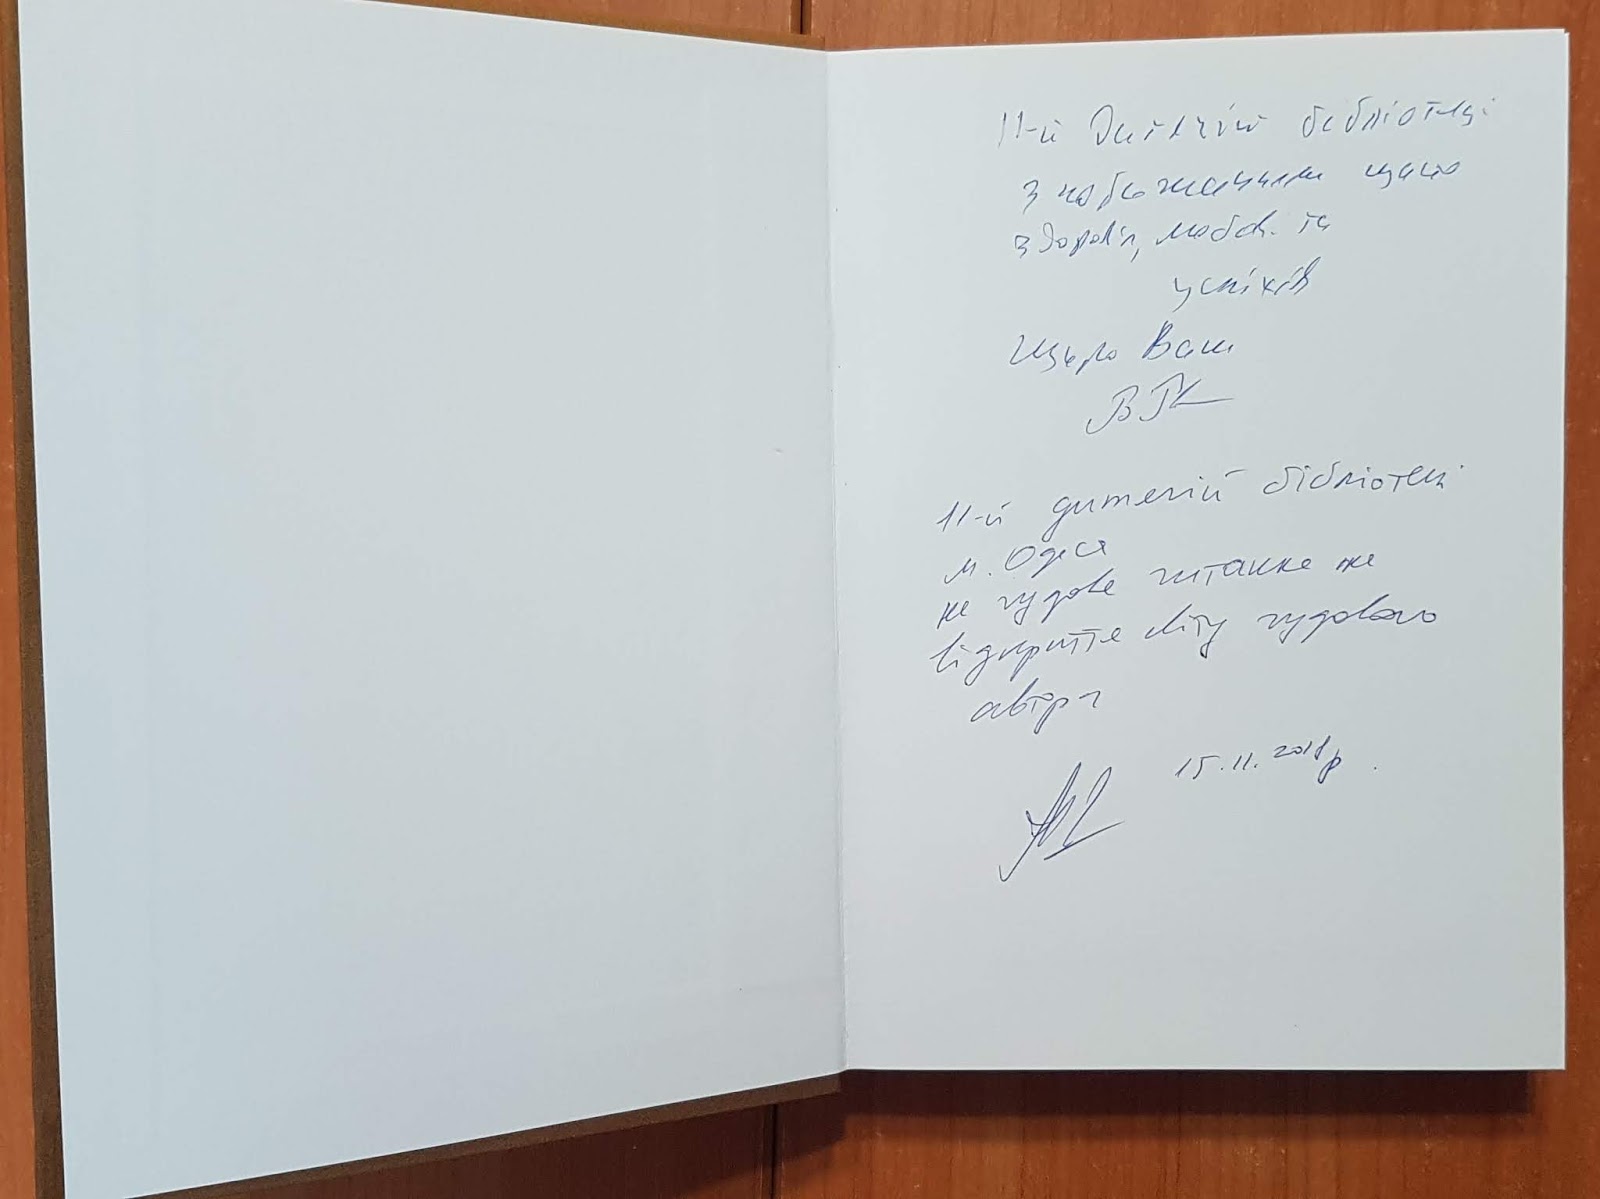 11-й Дитячій бібліотеці
з побажанням щастя
здоров'я, любові та
успіхів
Щиро Ваш
11-й дитячій бібліотеці
м. Одеса
на чудове читання на
відкриття світу чудового
автора
15.11.2018р.